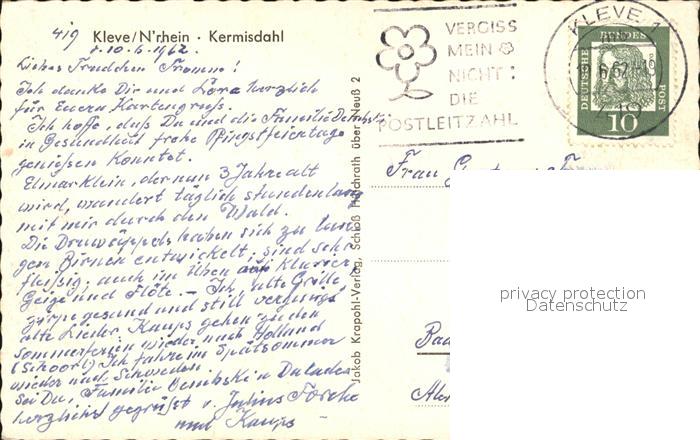 419 Kleve/N'rhein · Kermisdahl
d. 10.6.1962.
Liebes Trudchen Fromm!
Ich danke Dir und Lora herzlich
für Euern Kartengruß.
Ich hoffe, daß Du und die Familie
in Gesundheit frohe Pfingstfeiertage
genießen konntet.
Elmar Klein, der nun 3 Jahre alt
wird, wandert täglich stundenlang
mit mir durch den Wald.
Die haben sich zu
gen Birnen entwickelt, sind sehr
fleißig, auch im Üben auf Klavier,
Geige und Flöte. – Ich, alte Grille,
zirpe gesund und still vergnügt
alte Lieder. Kaups gehen zu den
Sommerferien wieder nach Holland
(Schoorl) Ich fahre im Spätsommer
wieder nach Schweden.
Sei Du, Familie
herzlichst gegrüßt v. Julius
und Kaups –
Jakob Krapohl-Verlag, Schloß Hackhrath über Neuß 2
VERGISS
MEIN
NICHT:
DIE
POSTLEITZAHL
KLEVE 1
DEUTSCHE BUNDESPOST
10
Frau
Bad
privacy protection
Datenschutz